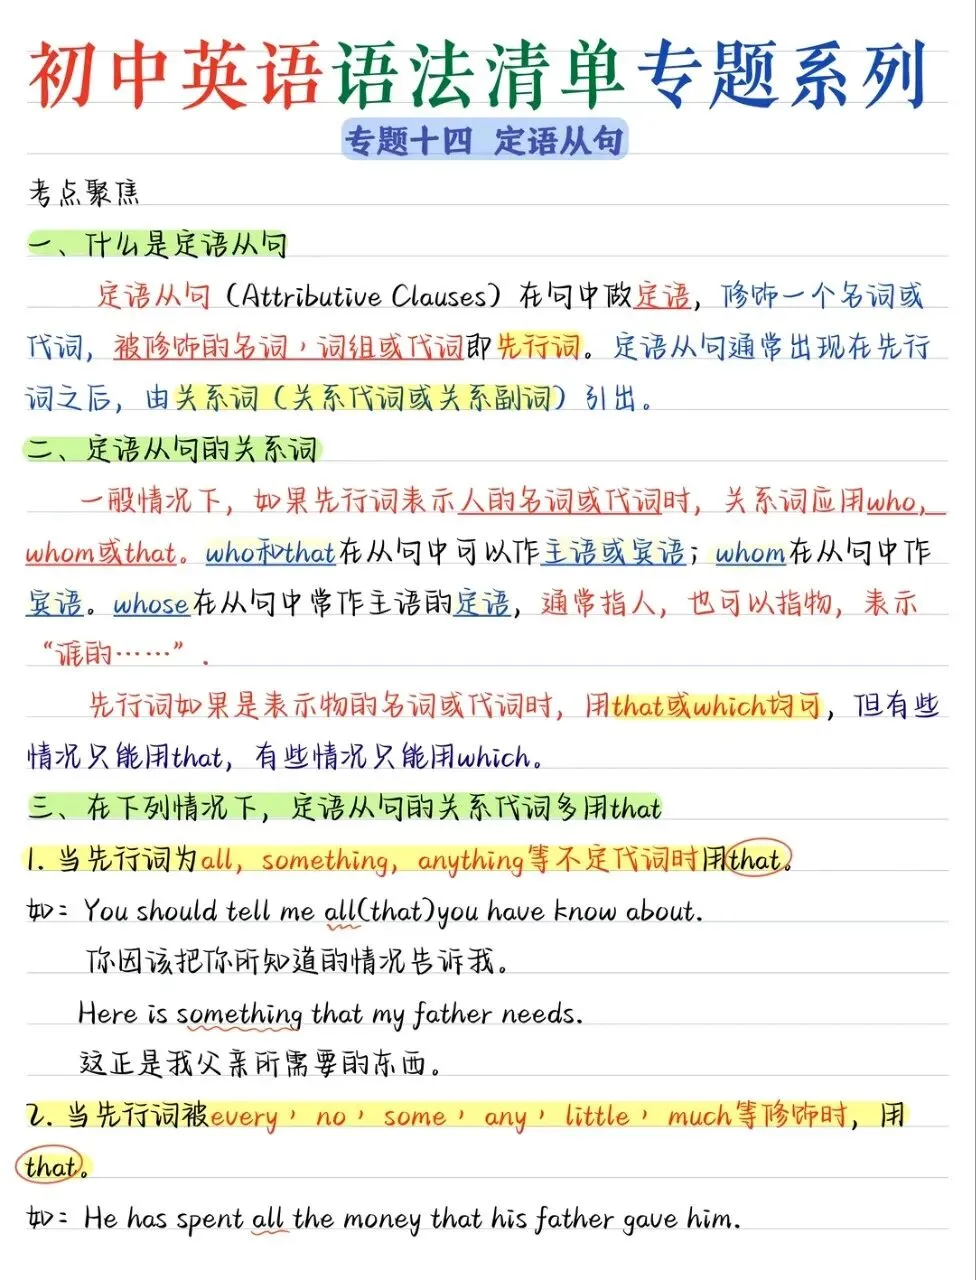 初中英语语法清单专题系列
专题十四 定语从句
考点聚焦
一、什么是定语从句
定语从句（Attributive Clauses）在句中做定语，修饰一个名词或
代词，被修饰的名词，词组或代词即先行词。定语从句通常出现在先行
词之后，由关系词（关系代词或关系副词）引出。
二、定语从句的关系词
一般情况下，如果先行词表示人的名词或代词时，关系词应用who，
whom或that。who和that在从句中可以作主语或宾语；whom在从句中作
宾语。whose在从句中常作主语的定语，通常指人，也可以指物，表示
“谁的……”.
先行词如果是表示物的名词或代词时，用that或which均可，但有些
情况只能用that，有些情况只能用which。
三、在下列情况下，定语从句的关系代词多用that
1. 当先行词为all，something，anything等不定代词时用that。
如：You should tell me all(that)you have know about.
你因该把你所知道的情况告诉我。
Here is something that my father needs.
这正是我父亲所需要的东西。
2. 当先行词被every，no，some，any，little，much等修饰时，用
that。
如：He has spent all the money that his father gave him.